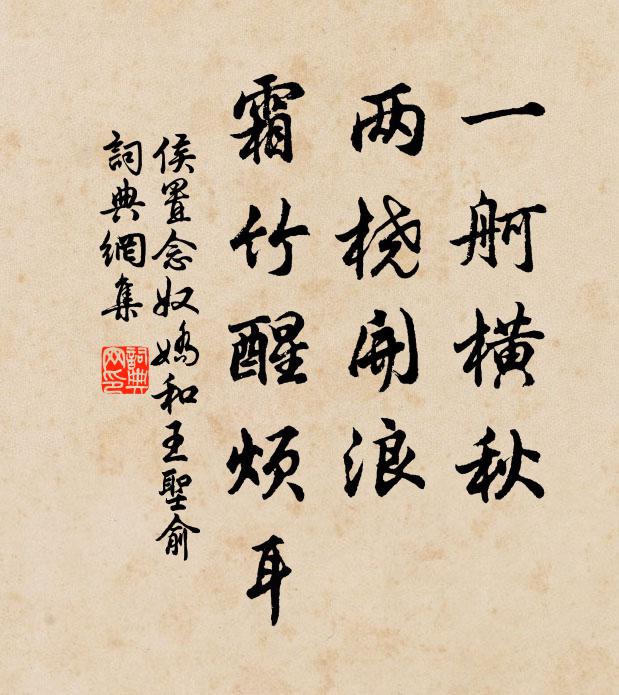 一舸橫秋
两桡開浪
霜竹醒烦耳
侯置念奴嬌和王聖俞
詞典網集
詞典網印